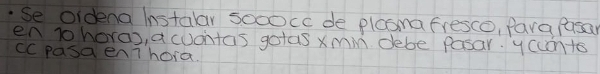 · Se ordena Instalar 5000cc de plasma fresco, Para Pasar
en 10 horas, a cuantas gotas x min debe Pasar. y cuanto
cc pasa en 1 hora.